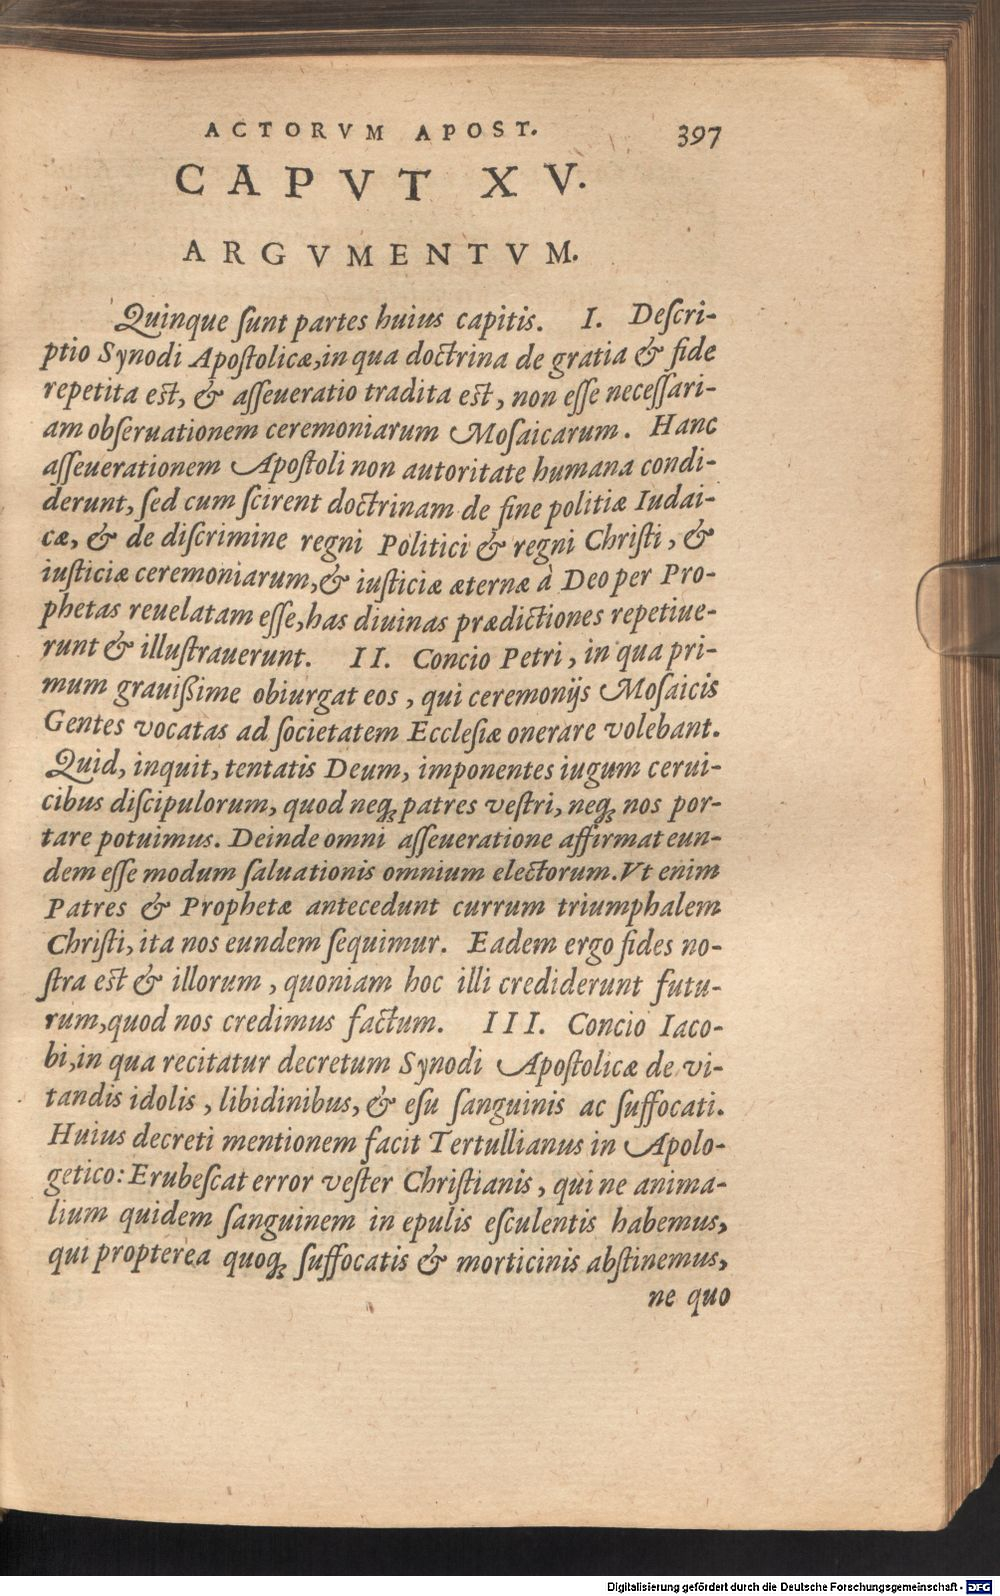 ACTORVM APOST. 397
CAPVT XV.
ARGVMENTVM.
Quinque ſunt partes huius capitis. I. Deſcri-
ptio Synodi Apoſtolicæ, in qua doctrina de gratia & fide
repetita est, & aſſeueratio tradita est, non eſſe neceſſari-
am obſeruationem ceremoniarum Moſaicarum. Hanc
aſſeuerationem Apoſtoli non autoritate humana condi-
derunt, ſed cum ſcirent doctrinam de fine politiæ Iudai-
cæ, & de diſcrimine regni Politici & regni Chriſti, &
iuſticiæ ceremoniarum, & iuſticiæ æternæ à Deo per Pro-
phetas reuelatam eſſe, has diuinas prædictiones repetiue-
runt & illuſtrauerunt. II. Concio Petri, in qua pri-
mum grauißime obiurgat eos, qui ceremonijs Moſaicis
Gentes vocatas ad ſocietatem Eccleſiæ onerare volebant.
Quid, inquit, tentatis Deum, imponentes iugum cerui-
cibus diſcipulorum, quod neq; patres veſtri, neq; nos por-
tare potuimus. Deinde omni aſſeueratione affirmat eun-
dem eſſe modum ſaluationis omnium electorum. Vt enim
Patres & Prophetæ antecedunt currum triumphalem
Chriſti, ita nos eundem ſequimur. Eadem ergo fides no-
ſtra est & illorum, quoniam hoc illi crediderunt futu-
rum, quod nos credimus factum. III. Concio Iaco-
bi, in qua recitatur decretum Synodi Apoſtolicæ de vi-
tandis idolis, libidinibus, & eſu ſanguinis ac ſuffocati.
Huius decreti mentionem facit Tertullianus in Apolo-
getico: Erubeſcat error veſter Chriſtianis, qui ne anima-
lium quidem ſanguinem in epulis eſculentis habemus,
qui propterea quoq; ſuffocatis & morticinis abſtinemus,
ne quo
Digitalisierung gefördert durch die Deutsche Forschungsgemeinschaft - DFG